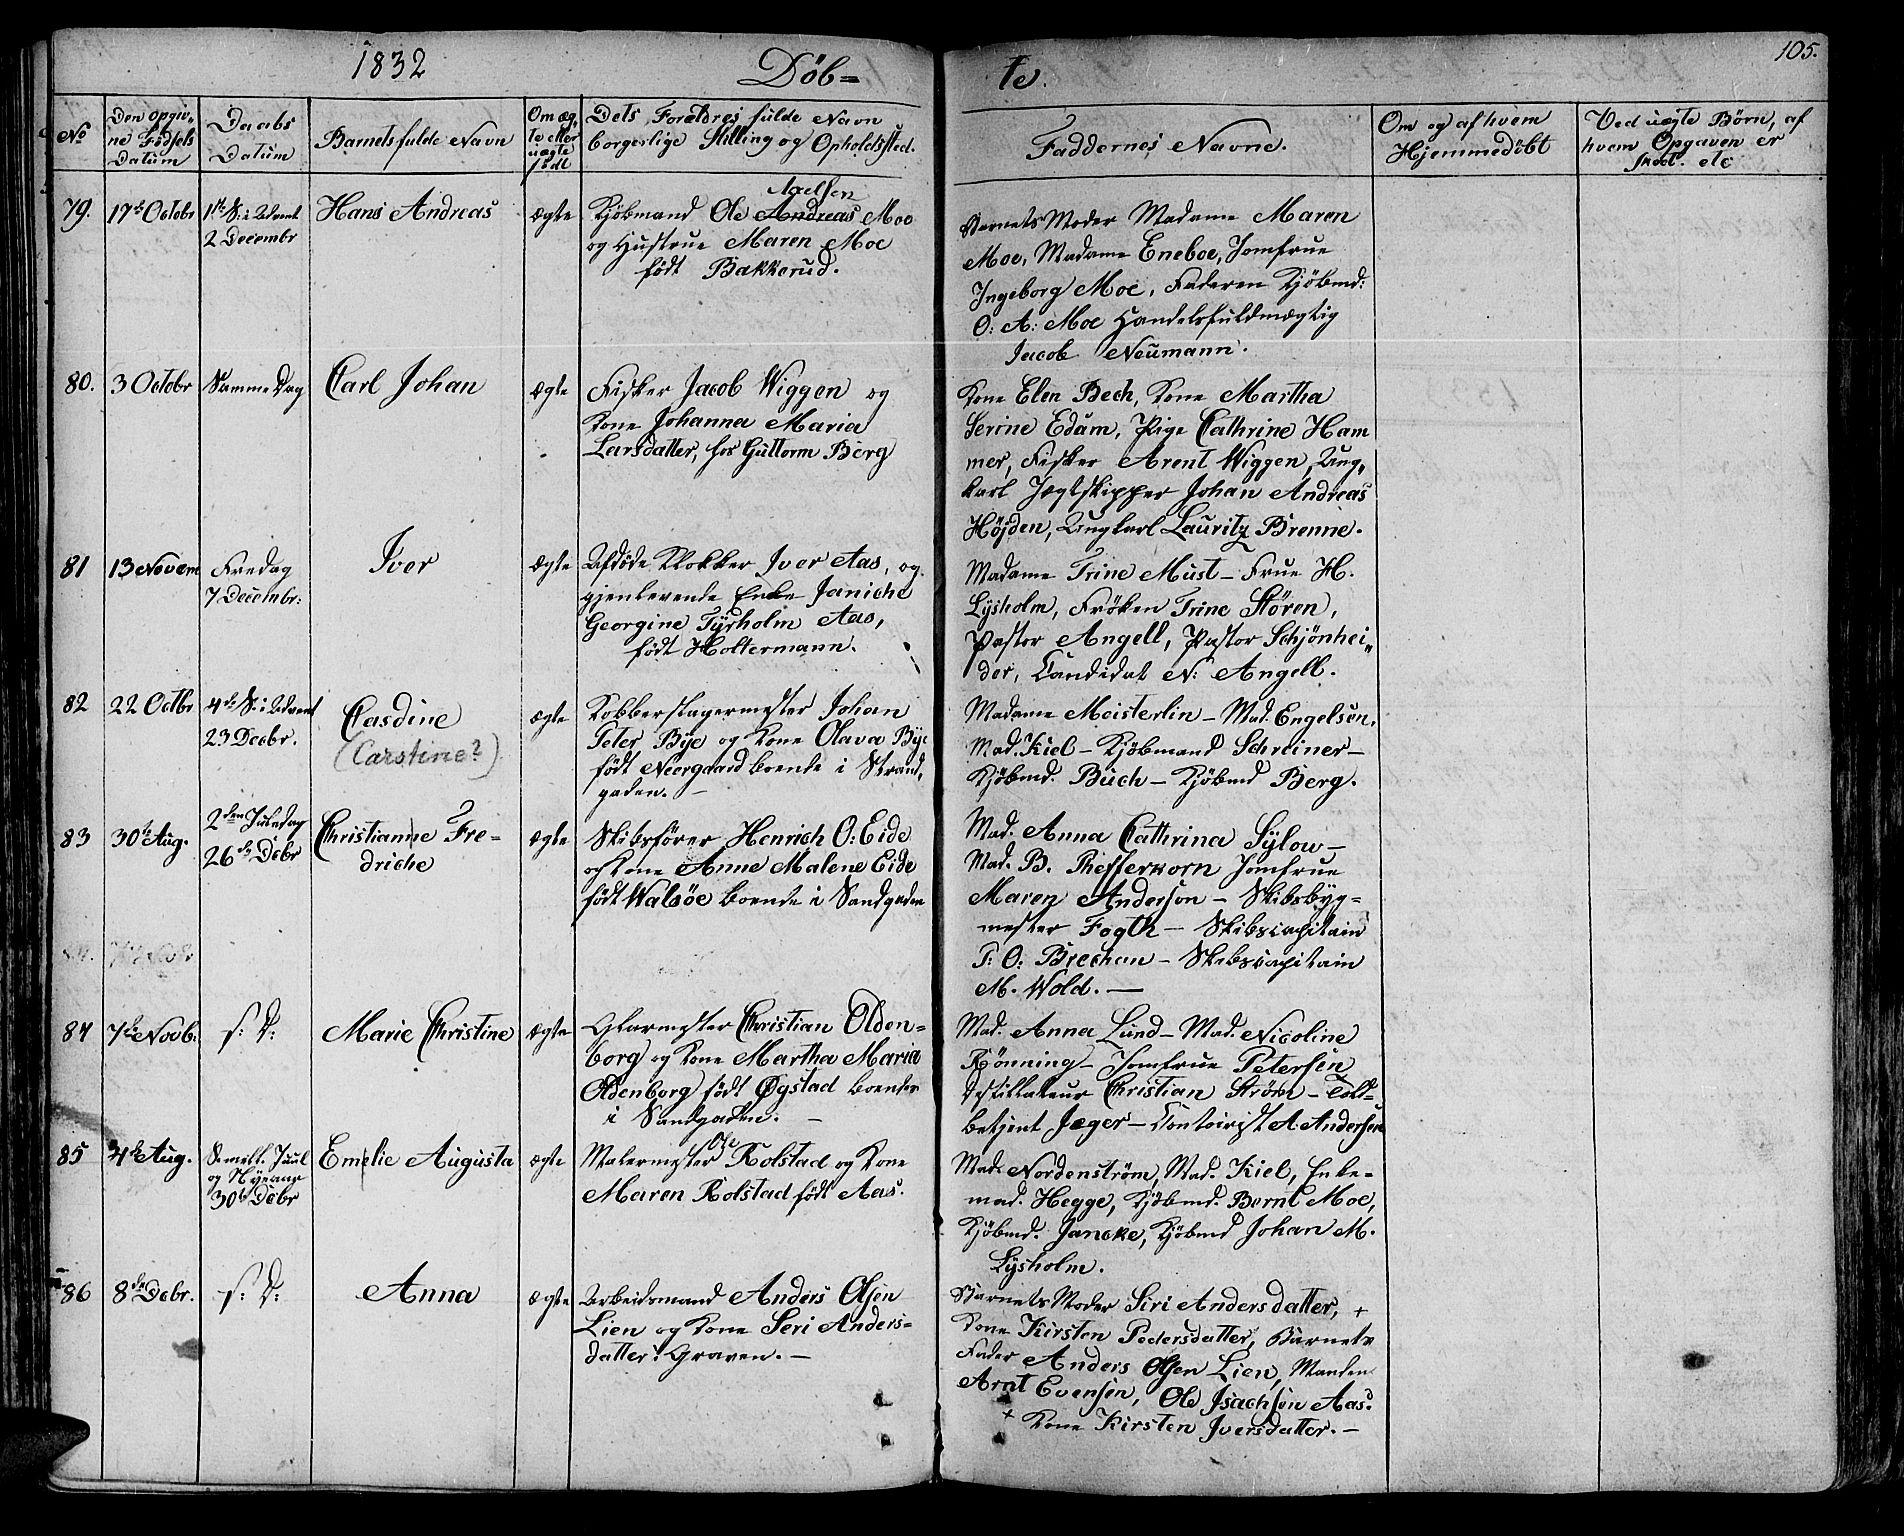 1832
Döb=
te.
105.
No
Den opgiv-
ne Fødsels
Datum
Daabs
Datum
Barnets fulde Navn
Om æg-
te eller
uægte
født
Dets Forældres fulde Navn
borgerlige Stilling og Opholdssted.
Faddernes Navne.
Om og af hvem
Hjemmedøbt
Ved uægte Børn, af
hvem Opgaven er
skeet. etc
79.
17de Octobr
1ste S. i Advent
2 Decembr
Hans Andreas
ægte
Axelsen
Kjöbmand Ole Andreas Moe
og Hustrue Maren Moe
födt Bakkerud.
Barnets Moder Madame Maren
Moe, Madame Eneboe, Jomfrue
Ingeborg Moe, Faderen Kjöbmd:
O: A: Moe Handelsfuldmægtig
Jacob Neumann.
80.
3 Octobr
Samme Dag
Carl Johan
ægte
Fisker Jacob Wiggen og
Kone Johanna Maria
Larsdatter, hos Guttorm Berg
Kone Elen Bech, Kone Martha
Serine Edam, Pige Cathrine Ham
mer, Fisker Arent Wiggen, Ung-
karl Jægtskipper Johan Andreas
Höjden, Ungkarl Lauritz Brenne.
81
13 Novem
Fredag
7 Decembr:
Iver
ægte
Afdöde Klokker Iver Aas, og
gjenlevende Enke Janiche
Georgine Tyrholm Aas,
födt Holtermann.
Madame Trine Must - Frue H.
Lysholm, Fröken Trine Stören,
Pastor Angell, Pastor Schjönhei-
der, Candidat N: Angell.
82
22 Octbr
4de S. i Advent
23 Decbr.
Casdine
(Carstine?)
ægte
Kobberslagermester Johan
Peter Bye og Kone Olava Bye
födt Neergaard boende i Strand-
gaden. -
Madame Meisterlin - Mad. Engelsen.
Mad. Kiel - Kjöbmand Schreiner -
Kjöbmd. Buch - Kjöbmd Berg.
83
30te Aug.
2den Juledag
26de Decbr
Christianne Fre-
driche
ægte
Skibsförer Henrich O: Eide
og Kone Anne Malene Eide
födt Walsöe boende i Sandgaden
Mad. Anna Cathrina Sylow -
Mad. B. Phefferkorn Jomfrue
Maren Anderson - Skibsbyg=
mester Fogth - Skibscapitain
P: O: Brechan - Skibscapitain
M. Wold. -
84
7de Novb:
s: D:
Marie Christine
ægte
Glarmester Christian Olden=
borg og Kone Martha Maria
Oldenborg födt Øgstad boende
i Sandgaden. -
Mad. Anna Lund - Mad. Nicoline
Rönning - Jomfrue Petersen
Destillateur Christian Ström - Told-
betjent Jæger - Contoirist A. Andersen
85
4de Aug.
S. mell. Juul
og Nyeaar
30te Decbr
Emelie Augusta
ægte
Ole
Malermester Rolstad og Kone
Maren Rolstad födt Aas.
Mad. Nordenström, Mad. Kiel, Enke-
mad. Hegge, Kjöbmd. Bernt Moe,
Kjöbmd. Jancke, Kjöbmd Johan M.
Lysholm.
86
8de Decbr.
s: D:
Anna
ægte
Arbeidsmand Anders Olsen
Lien og Kone Seri Anders=
datter i Graven. -
Barnets Moder Siri Andersdatter, +
Kone Kirsten Pedersdatter, Barnets
Fader Anders Olsen Lien, Manden
Arnt Evensen, Ole Isachsön Aas.
+ Kone Kirsten Iversdatter. -